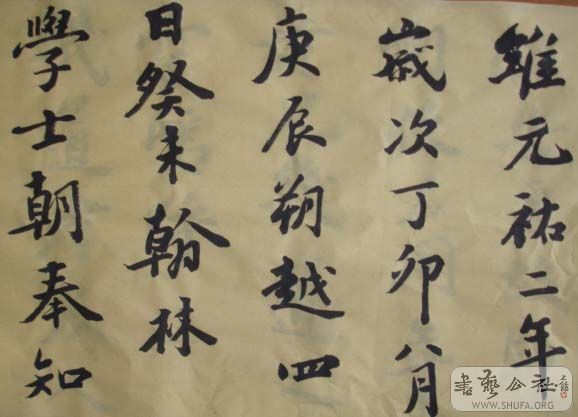 維元祐二年
歲次丁卯八月
庚辰朔越四
日癸未翰林
學士朝奉知
書藝公社
WWW.SHUFA.ORG